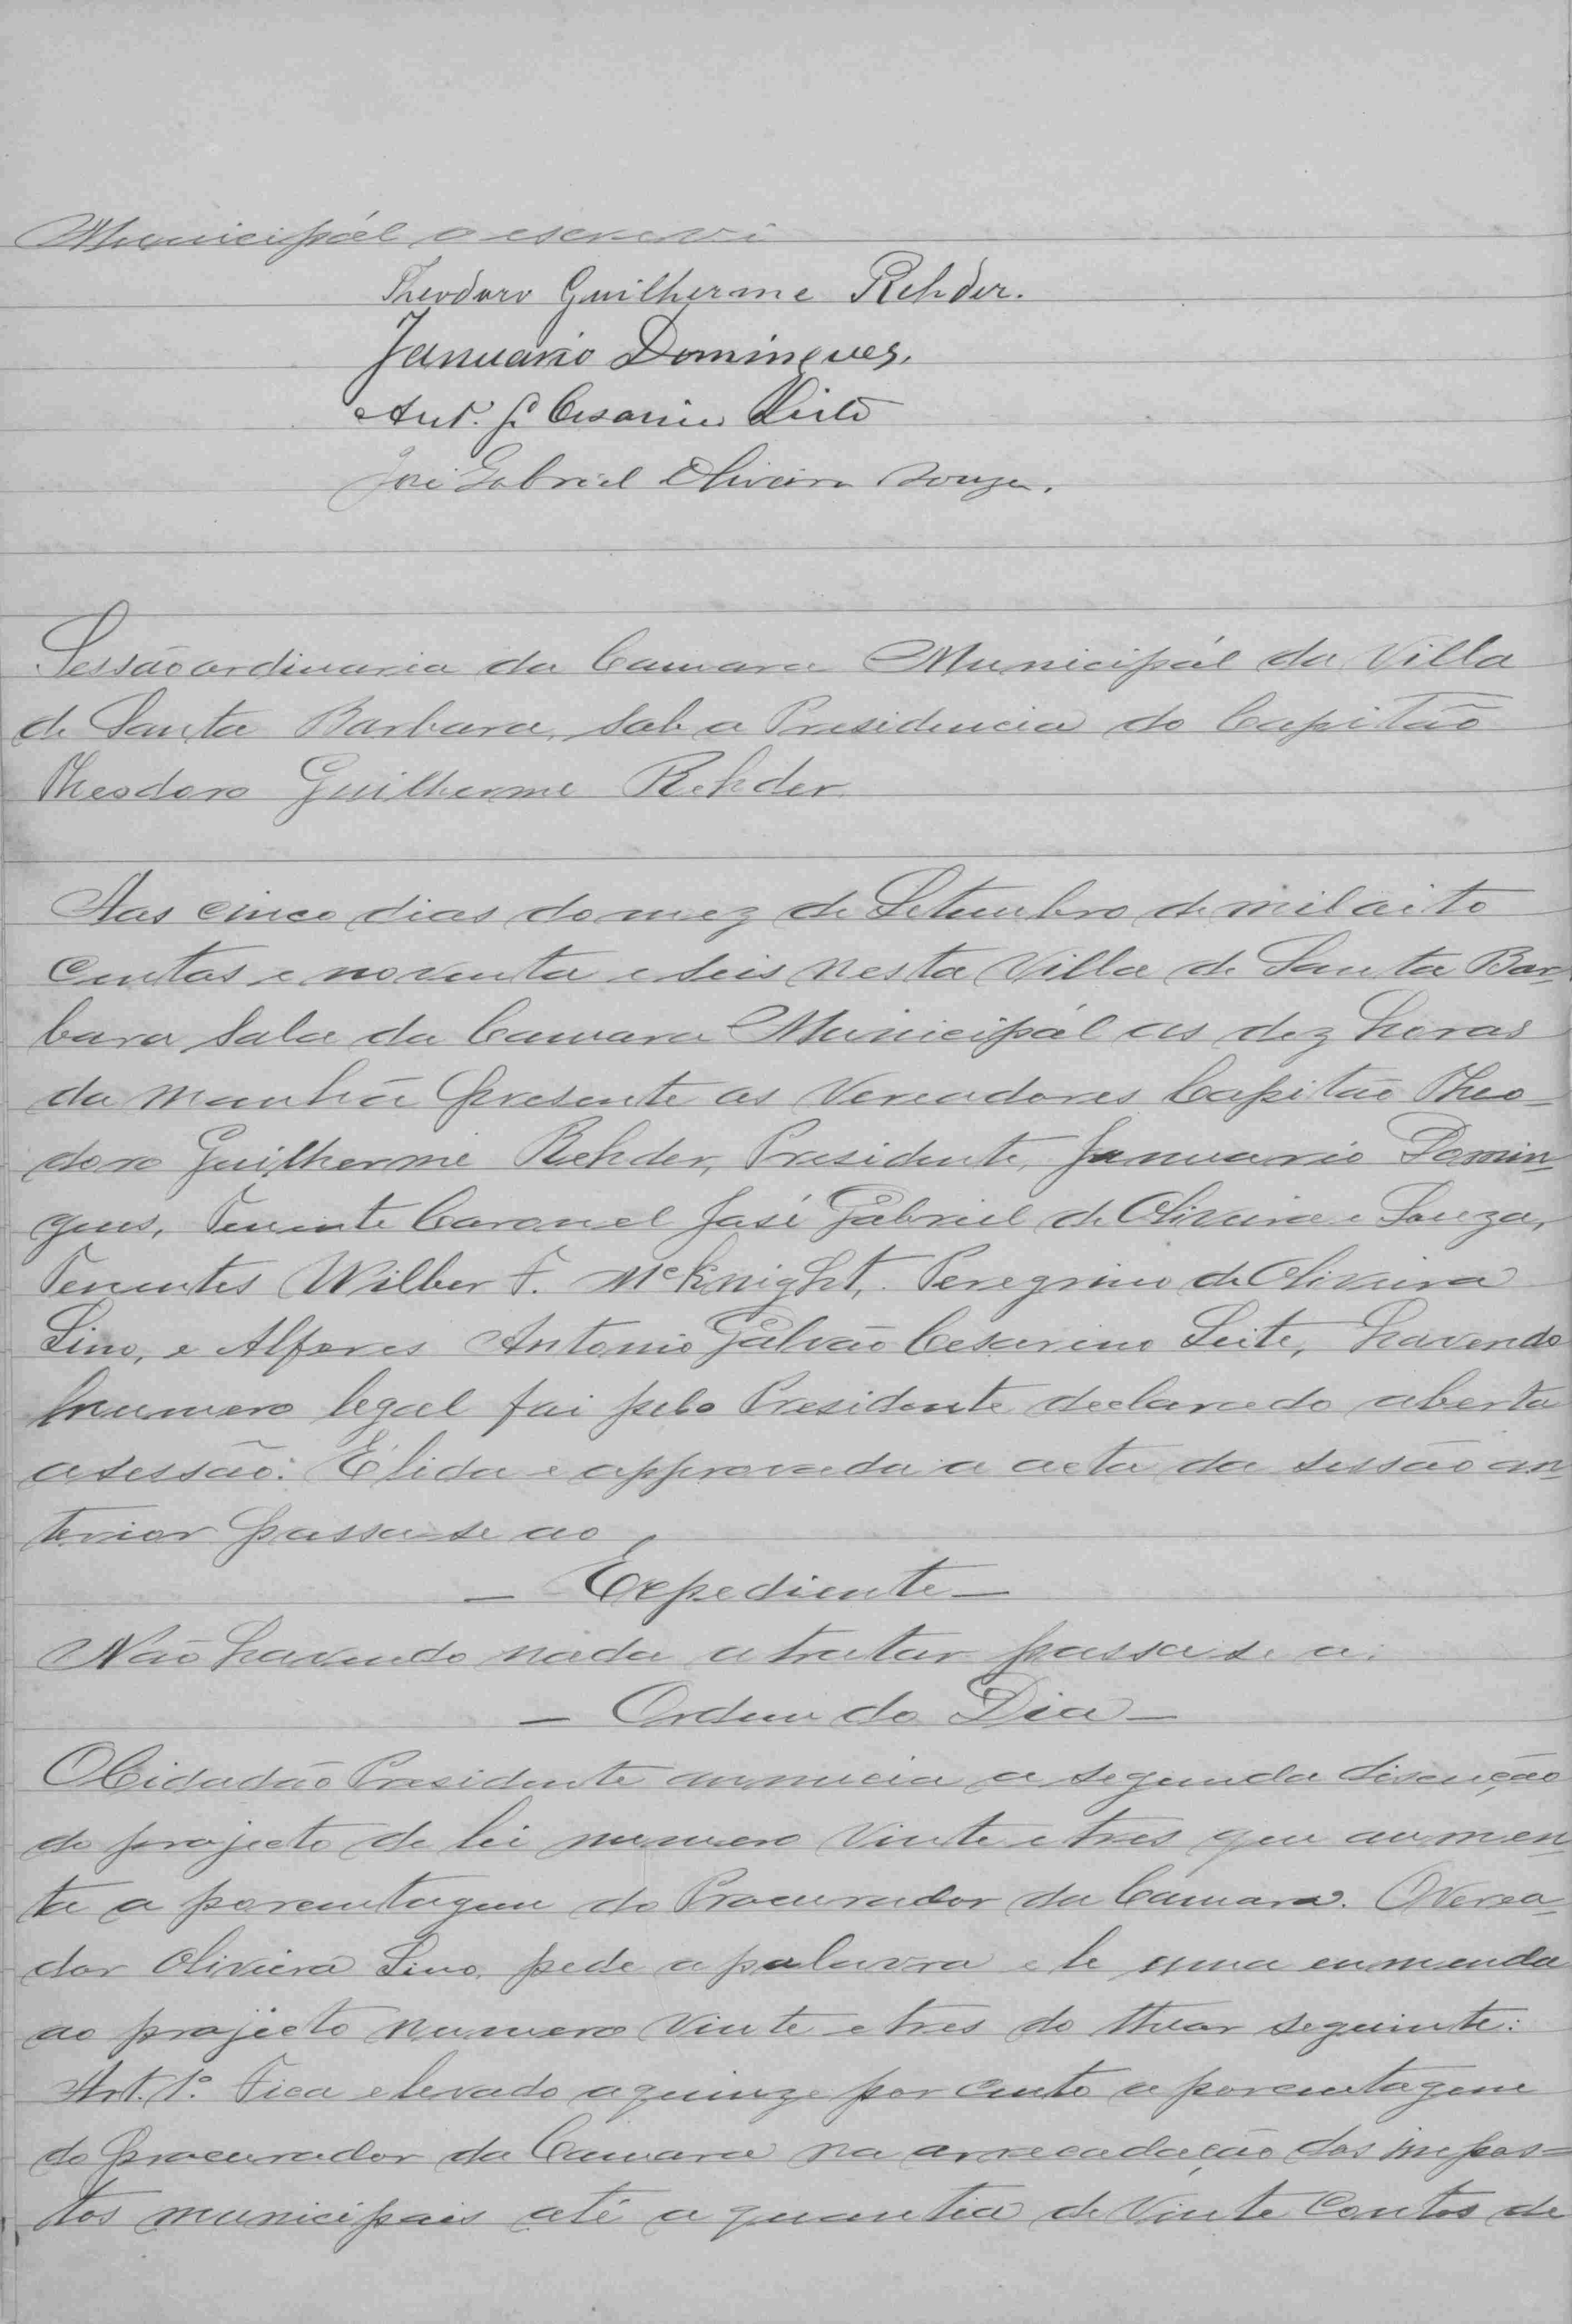 Municipál o escrevi
Theodoro Guilherme Rehder.
Januario Domingues.
Antº. G. Cesarino Leite
José Gabriel Oliveira Souza.
Sessão ordinaria da Camara Municipál da Villa
de Santa Barbara, sob a Presidencia do Capitão
Theodoro Guilherme Rehder
Aos cinco dias do mez de Setembro de mil oito
centos e noventa e seis nesta Villa de Santa Bar-
bara sala da Camara Municipál as dez horas
da manhã presente os Vereadores Capitão Theo-
doro Guilherme Rehder, Presidente, Januario Domin-
gues, Tenente Coronel José Gabriel de Oliveira e Souza,
Tenentes Wilber F. McKnight, Peregrino de Oliveira
Lino, e Alferes Antonio Galvão Cesarino Leite, havendo
numero legal foi pelo Presidente declarado aberta
a sessão. É lida e approvada a acta da sessão an-
terior passa-se ao
— Expediente —
Não havendo nada a tratar passa-se a.
— Ordem do Dia —
O Cidadão Presidente annuncia a segunda discução
do projecto de lei numero vinte e tres que aumen-
ta a porcentagem do Procurador da Camara. O Verea-
dor Oliviera Lino, pede a palavra e le uma enmenda
ao projecto numero vinte e tres do theor seguinte:
Art. 1º. Fica elevado a quinze por cento a porcentagem
do procurador da Camara na arrecadação dos impos=
tos municipais até a quantia de Vinte Contos de